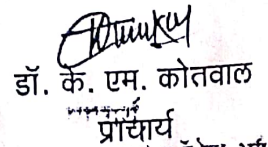 डॉ. के. एम. कोतवाल
प्राचार्य